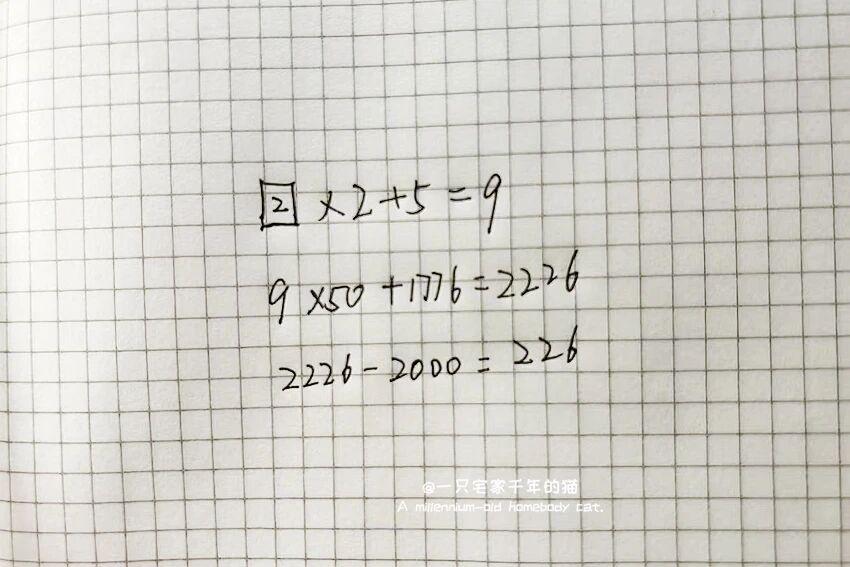 2 ×2+5=9
9×50+1776=2226
2226-2000=226
@一只宅家千年的猫
A millennium-old homebody cat.